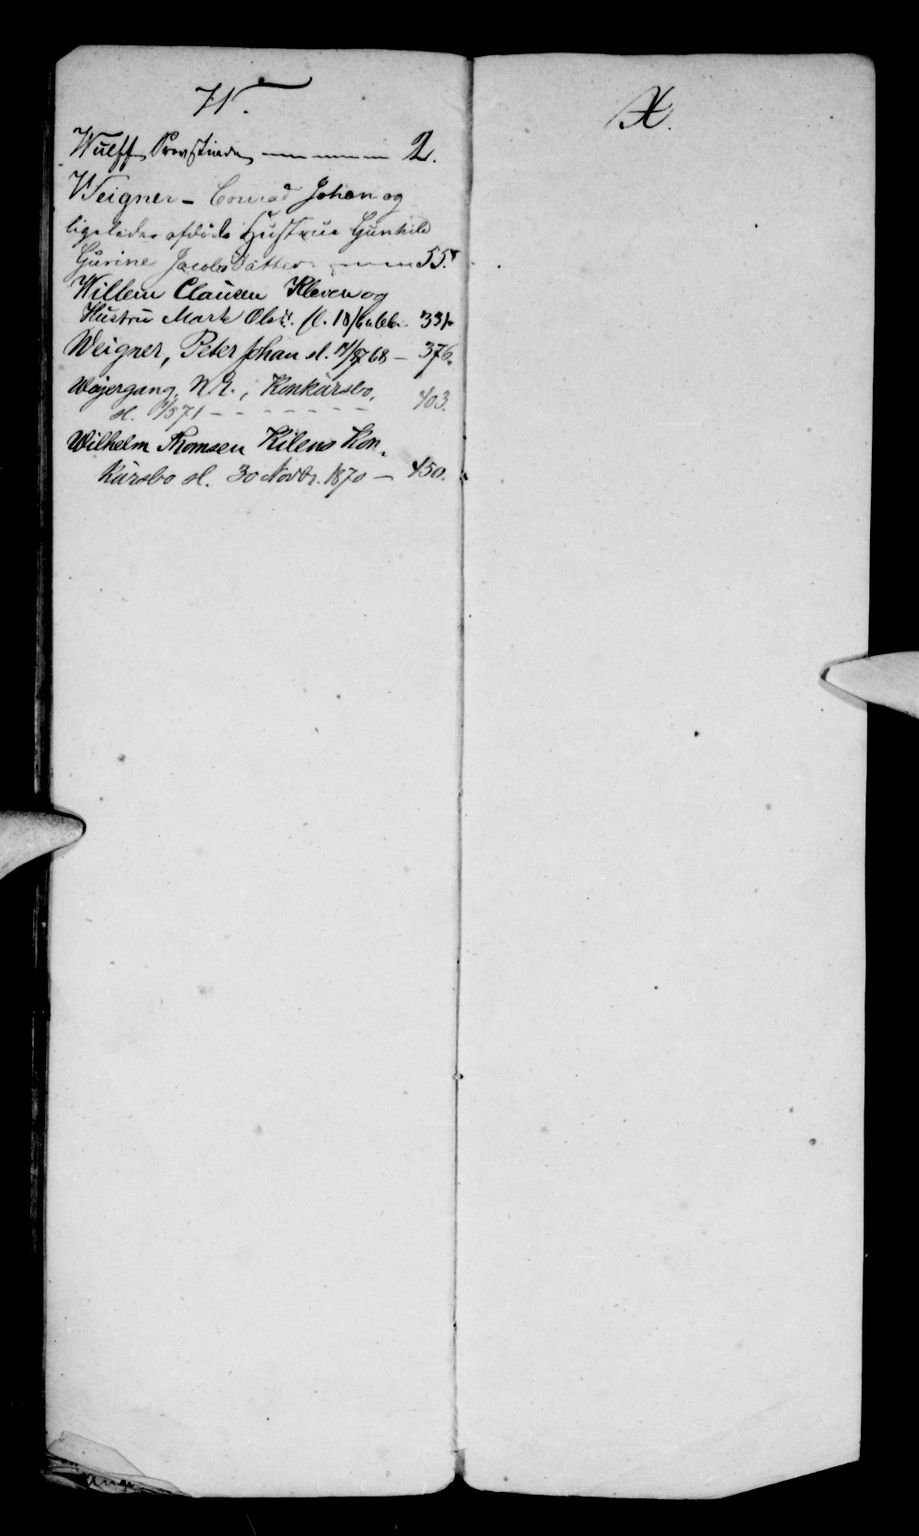 W.
Wulff Provstinde 2.
Weigner - Conrad Johan og
ligeledes afdøde Hustrue Gunhild
Gurine Jacobsdatter 55.
Willem Clausen Kleven og
Hustru Marte Olsd. sl. 18/6 66. 331.
Weigner, Peter Johan sl. 68 — 376.
Weyergang, Konkursbo,
sl. 71 - - - - - - - 403.
Wilhelm Thomsen Kilens Kon-
kursbo sl. 30 Novbr. 1870 — 450.
X.